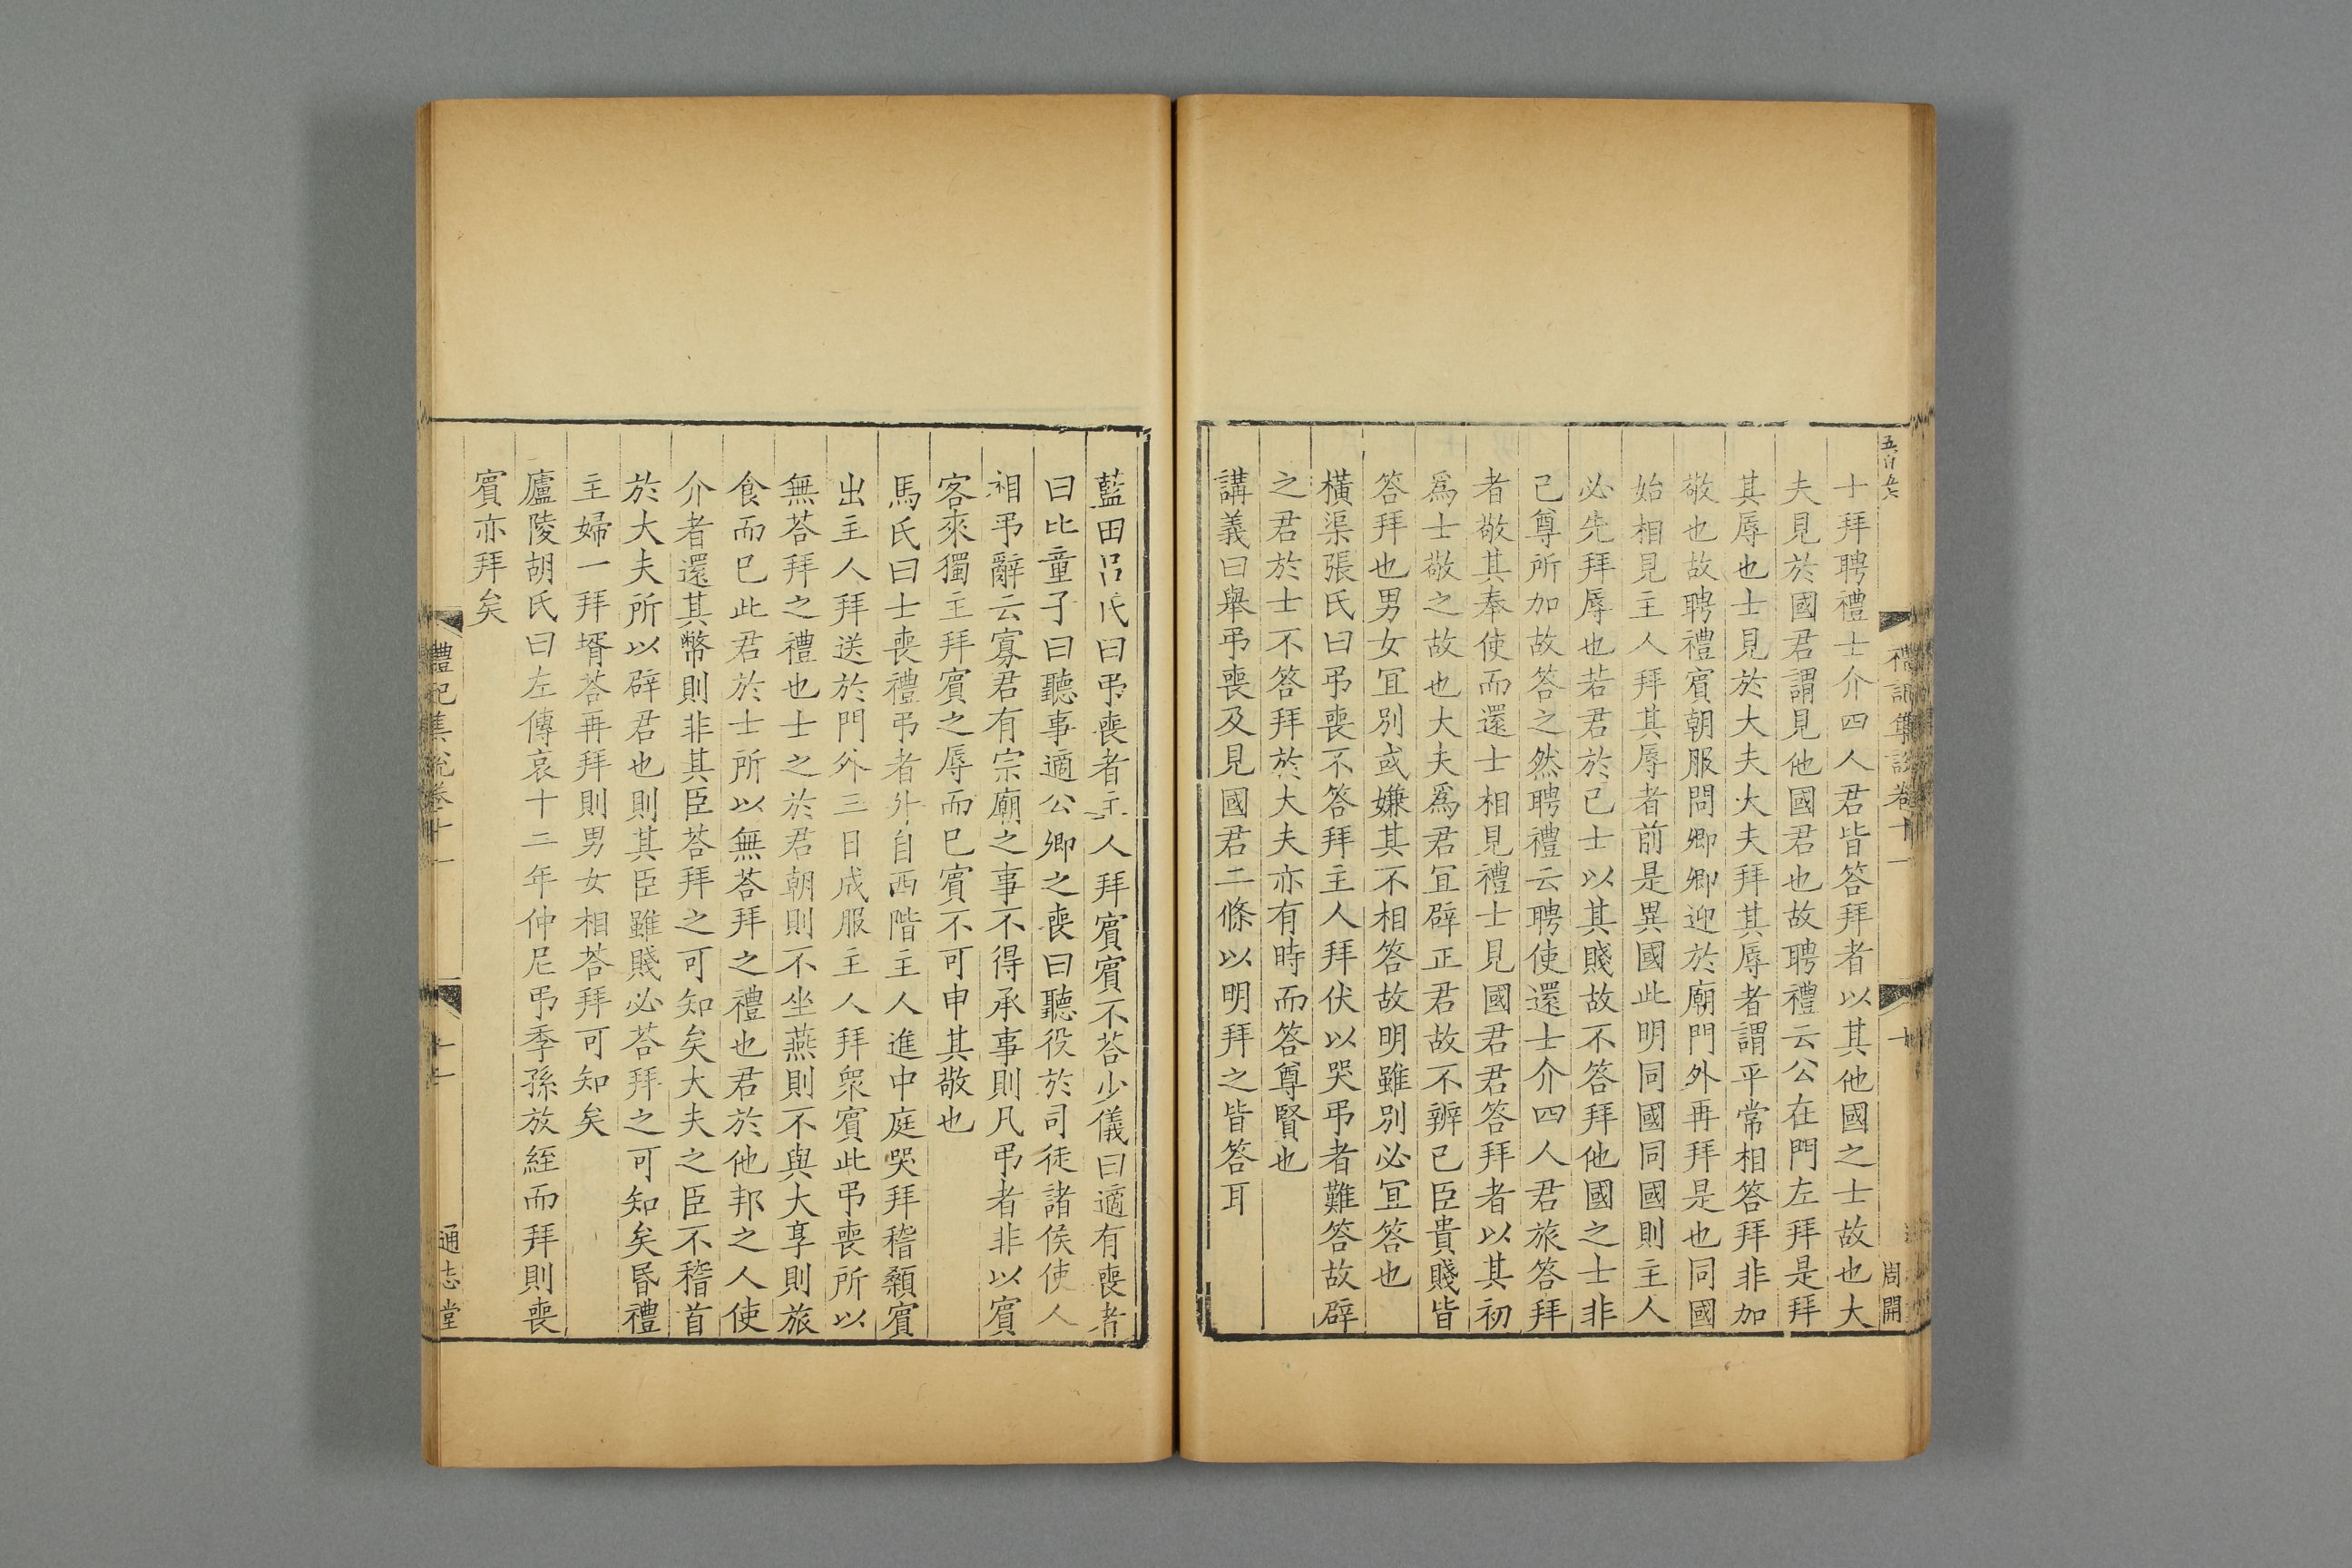 士拜聘禮士介四人君皆答拜者以其他國之士故也大
夫見於國君謂見他國君也故聘禮云公在門左拜是拜
其辱也士見於大夫大夫拜其辱者謂平常相答拜非加
敬也故聘禮賓朝服問卿卿迎於廟門外再拜是也同國
始相見主人拜其辱者前是異國此明同國同國則主人
必先拜辱也若君於己士以其賤故不答拜他國之士非
己尊所加故答之然聘禮云聘使還士介四人君旅答拜
者敬其奉使而還士相見禮士見國君君答拜者以其初
爲士敬之故也大夫爲君宜辟正君故不辨己臣貴賤皆
答拜也男女宜別或嫌其不相答故明雖別必宜答也
橫渠張氏曰弔喪不答拜主人拜伏以哭弔者難答故辟
之君於士不答拜於大夫亦有時而答尊賢也
講義曰舉弔喪及見國君二條以明拜之皆答耳
禮記集說卷十一
十
周開
藍田呂氏曰弔喪者主人拜賓賓不荅少儀曰適有喪者
曰比童子曰聽事適公卿之喪曰聽役於司徒諸侯使人
相弔辭云寡君有宗廟之事不得承事則凡弔者非以賓
客來獨主拜賓之辱而巳賓不可申其敬也
馬氏曰士喪禮弔者升自西階主人進中庭哭拜稽顙賓
出主人拜送於門外三日成服主人拜眾賓此弔喪所以
無荅拜之禮也士之於君朝則不坐燕則不與大享則旅
食而巳此君於士所以無荅拜之禮也君於他邦之人使
介者還其幣則非其臣荅拜之可知矣大夫之臣不稽首
於大夫所以辟君也則其臣雖賤必荅拜之可知矣昏禮
主婦一拜壻荅再拜則男女相荅拜可知矣
廬陵胡氏曰左傳哀十二年仲尼弔季孫放絰而拜則喪
賓亦拜矣
禮記集說卷十一
十一
通志堂